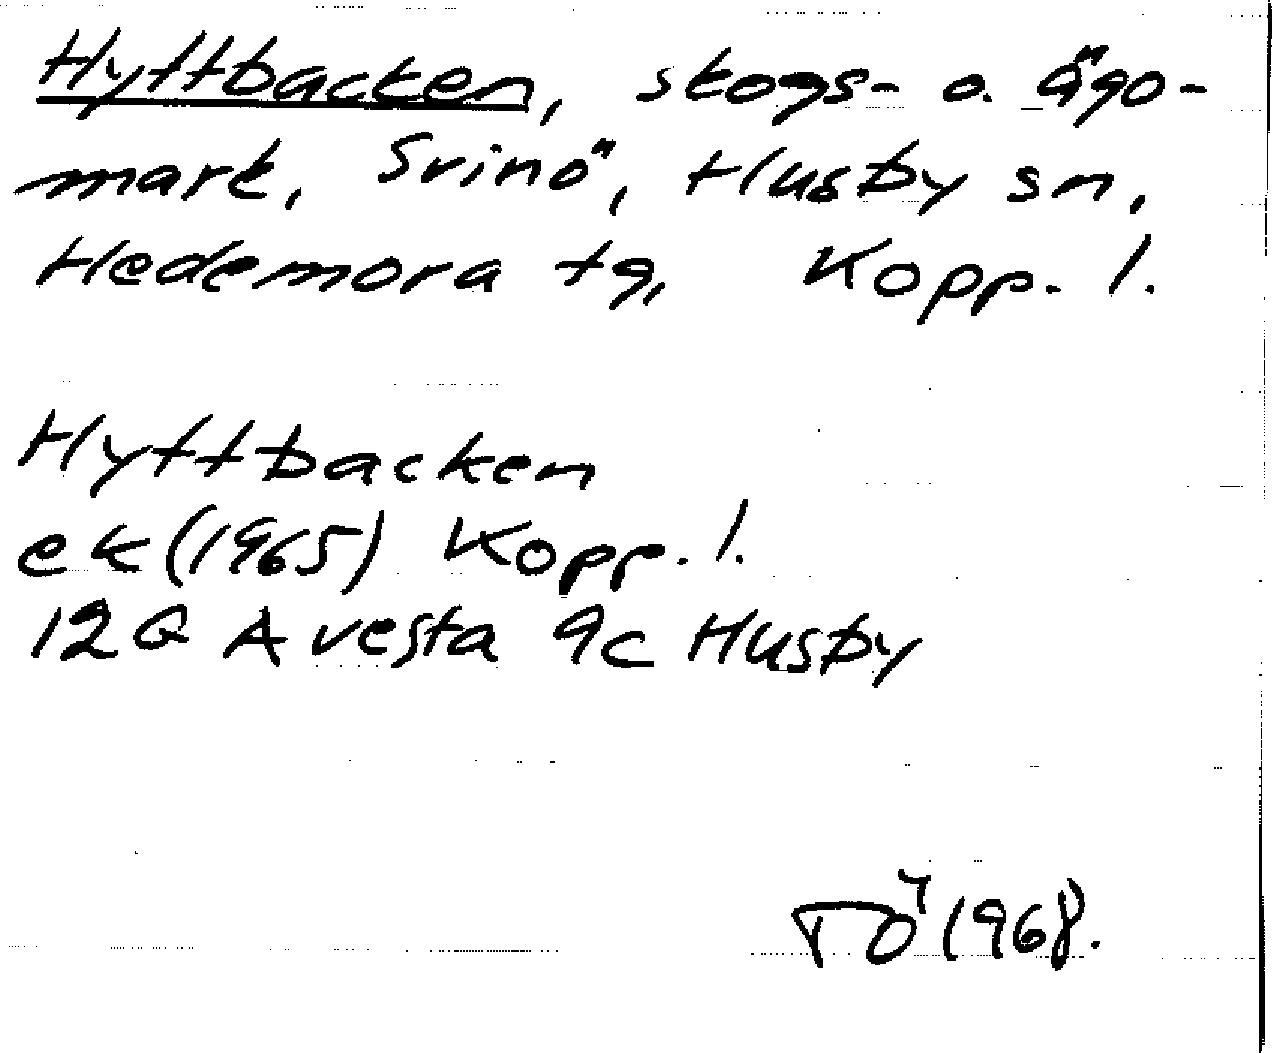 Hyttbacken, skogs- o. ägo-
mark, Svinö, Husby sn,
Hedemora tg, Kopp. l.
Hyttbacken
ek (1965) Kopp. l.
12G Avesta 9c Husby
TÖ 1968.